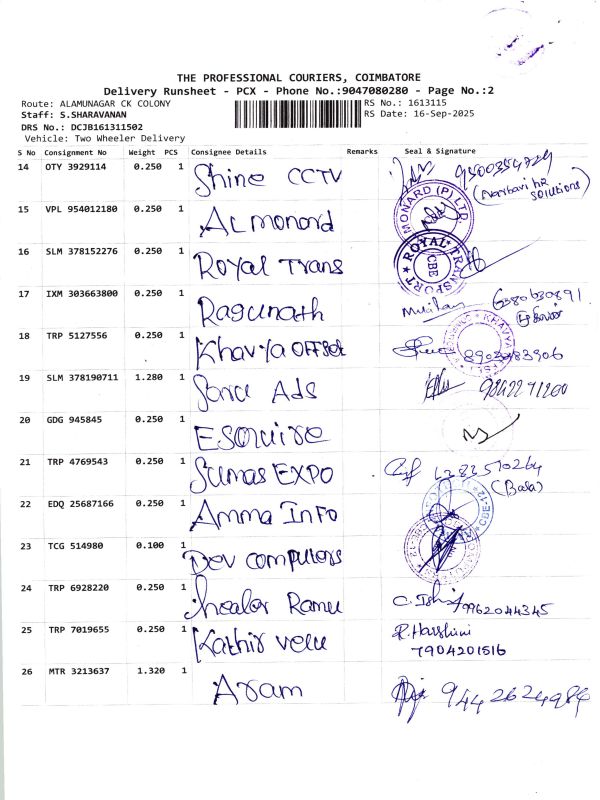 THE PROFESSIONAL COURIERS, COIMBATORE
Delivery Runsheet - PCX - Phone No.:9047080280 - Page No.:2
Route: ALAMUNAGAR CK COLONY
RS No.: 1613115
Staff: S.SHARAVANAN
RS Date: 16-Sep-2025
DRS No.: DCJB161311502
Vehicle: Two Wheeler Delivery
S No Consignment No Weight PCS Consignee Details Remarks Seal & Signature
14 OTY 3929114 0.250 1 Shine CCTV
15 VPL 954012180 0.250 1 AL monord MONARD (P) LTD
16 SLM 378152276 0.250 1 Royal Trans ROYAL TRANSPORT CBE
17 IXM 303663800 0.250 1 Ragunath 6380630891
18 TRP 5127556 0.250 1 Khavya OFFSet KHAVYA
19 SLM 378190711 1.280 1 Ads
20 GDG 945845 0.250 1 ESQUIRE
21 TRP 4769543 0.250 1 Sumas EXPO (Bala)
22 EDQ 25687166 0.250 1 Amma InFo CBE-12
23 TCG 514980 0.100 1 Dev computers
24 TRP 6928220 0.250 1 Ramu 9962044345
25 TRP 7019655 0.250 1 Kathir velu R. Harshini
7904201516
26 MTR 3213637 1.320 1 Aram 9442624984